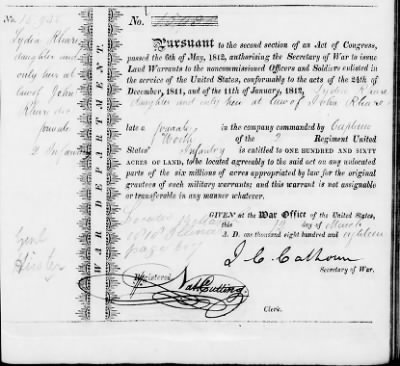 No. 15.942
No.
Lydia
daughter and
only heir at
law of John
private
2 Infantry
WAR DEPARTMENT.
Pursuant to the second section of an Act of Congress,
passed the 6th of May, 1812, authorising the Secretary of War to issue
Land Warrants to the noncommissioned Officers and Soldiers enlisted in
the service of the United States, conformably to the acts of the 24th of
December, 1811, and of the 11th of January, 1812, Lydia
daughter and only heir at law of John
late a private in the company commanded by Captain
of the 2 Regiment United
States' Infantry is entitled to ONE HUNDRED AND SIXTY
ACRES OF LAND, to be located agreeably to the said act on any unlocated
parts of the six millions of acres appropriated by law for the original
grantees of such military warrants; and this warrant is not assignable
or transferable in any manner whatever.
GIVEN at the War Office of the United States,
this day of March
A. D. one thousand eight hundred and eighteen
J. C. Calhoun
Secretary of War.
Registered
Nat Cutting
Clerk.